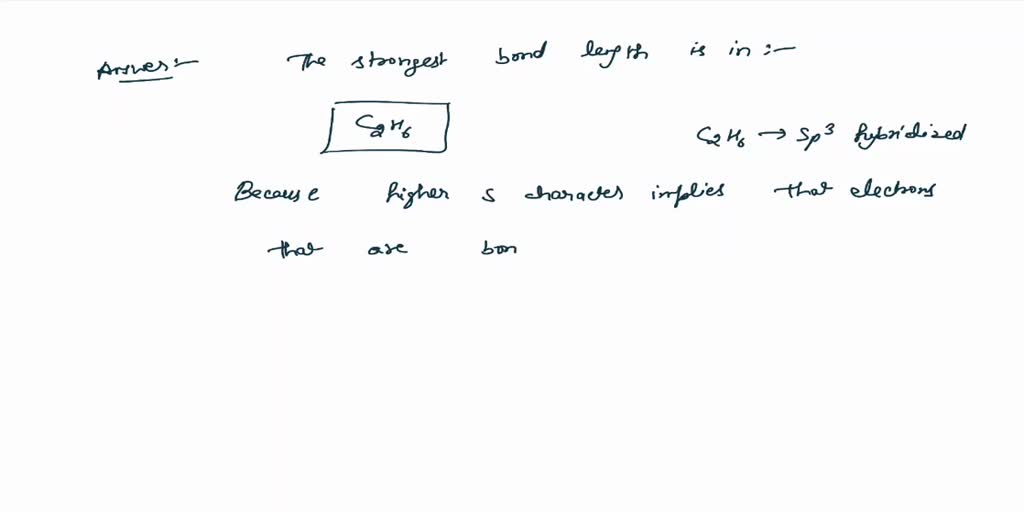 Answer:- The strongest bond length is in :-
C2H6 C2H6 → sp³ hybridized
Because higher s character implies that electrons
that are bon